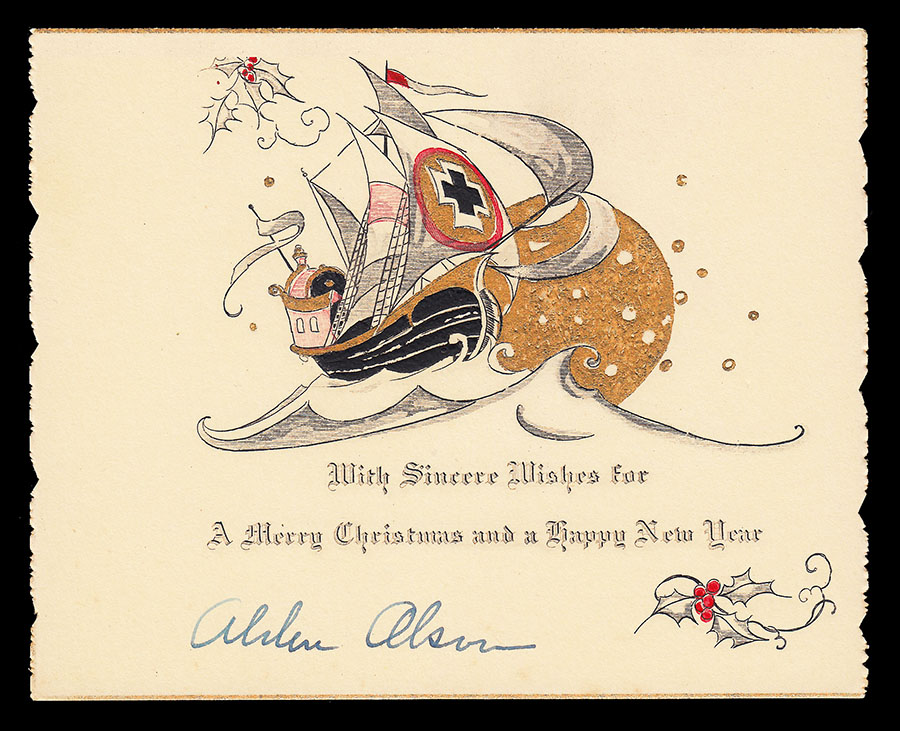 With Sincere Wishes for
A Merry Christmas and a Happy New Year
Alden Olson